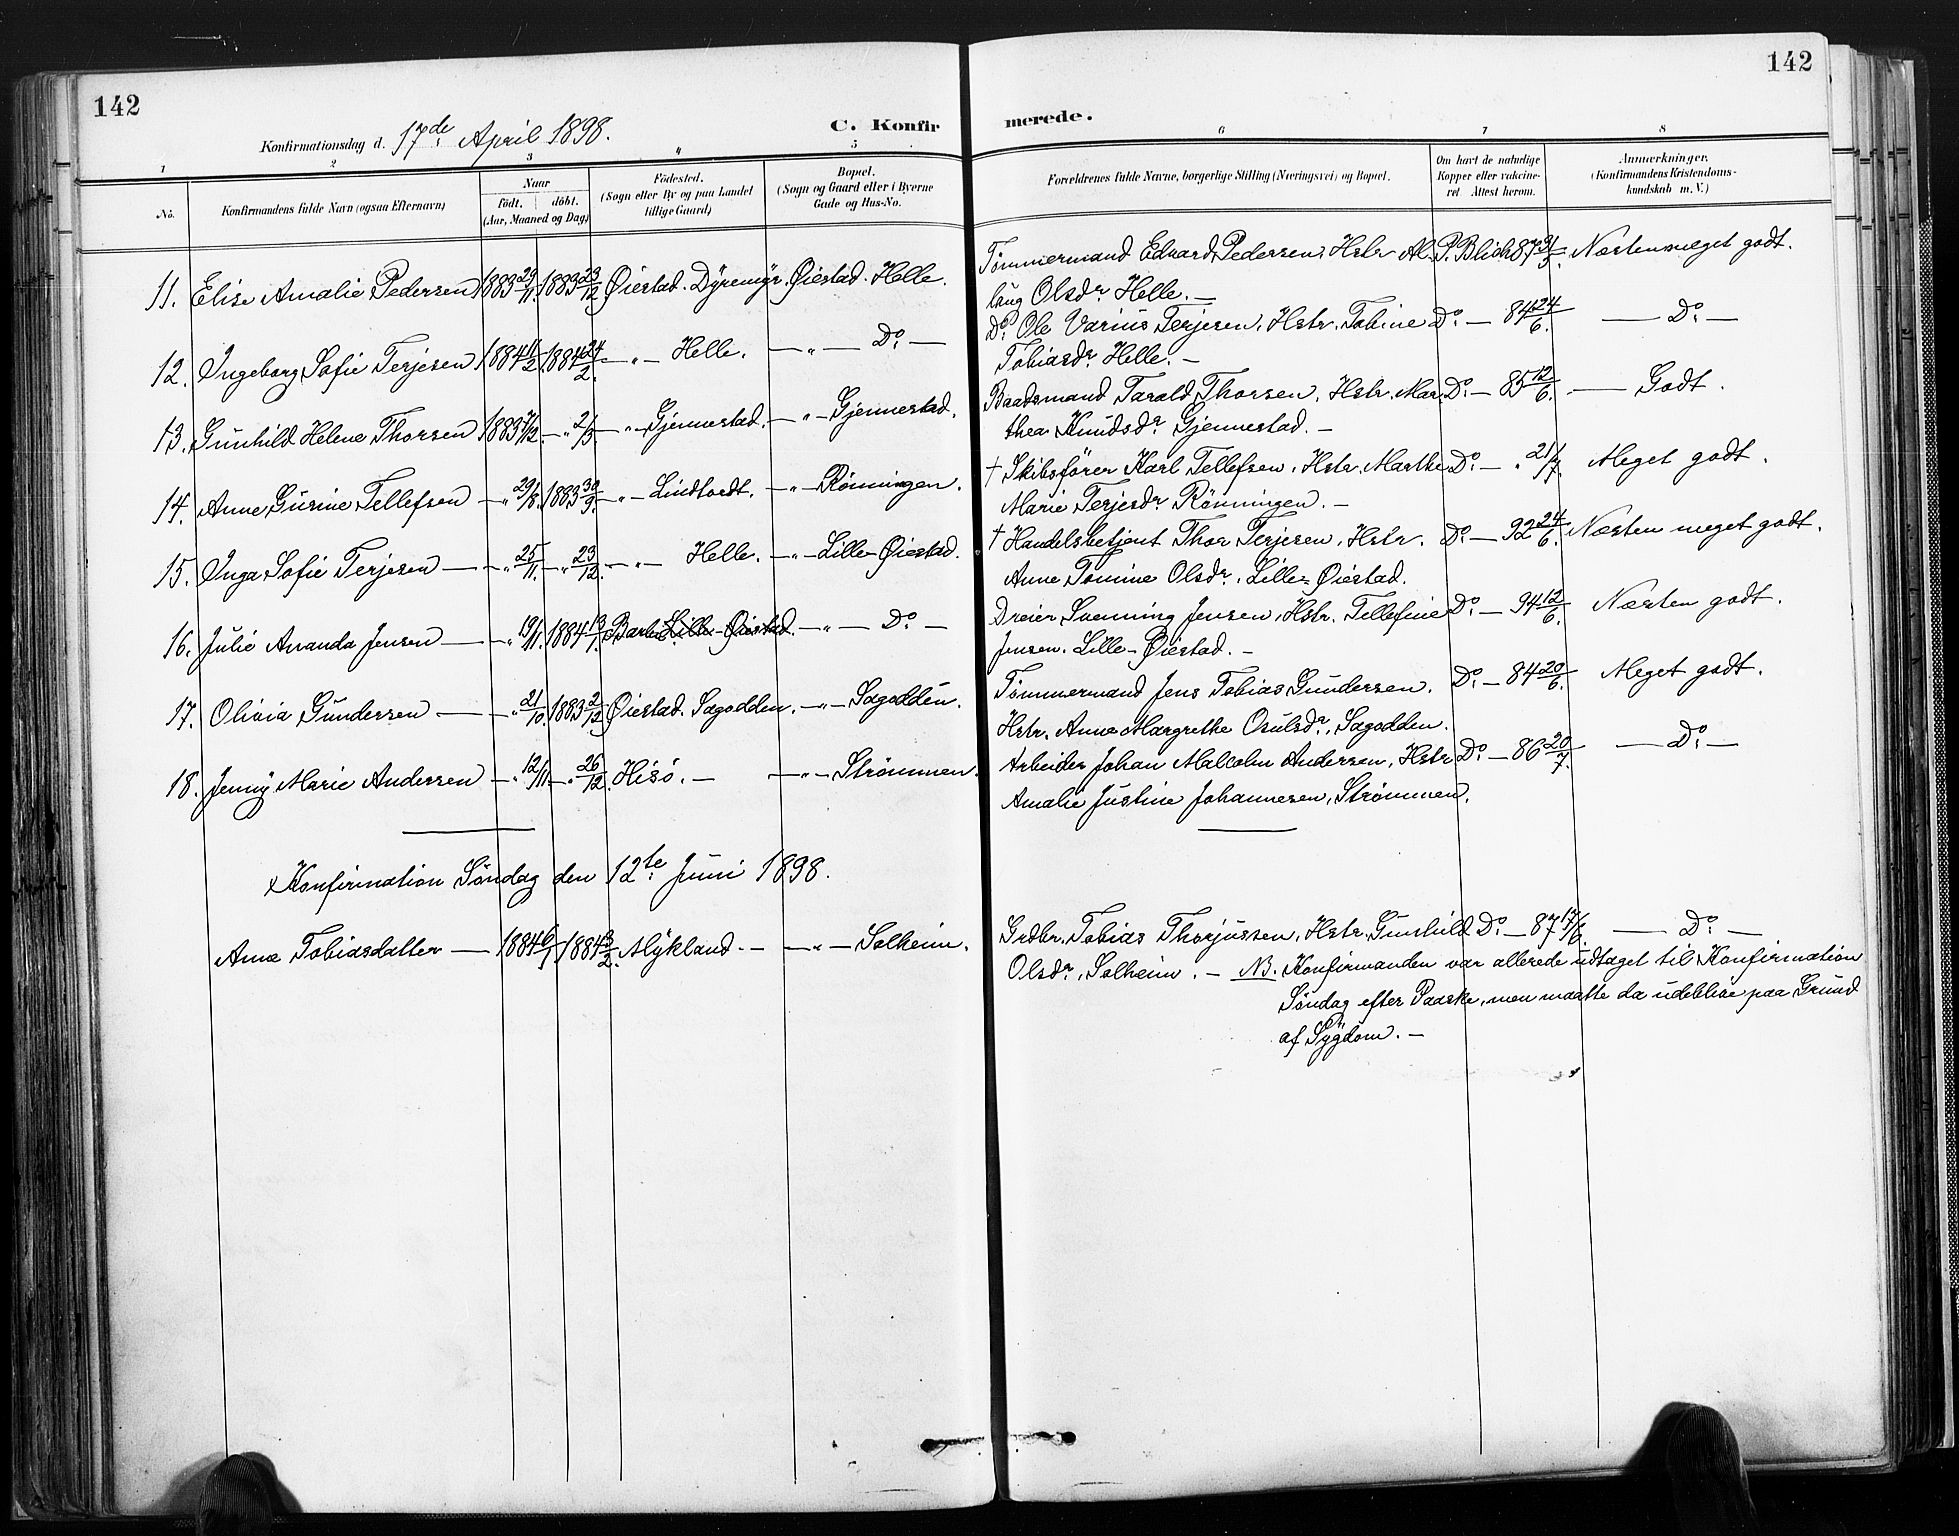 142
142
Konfirmationsdag d. 17de April 1898.
C. Konfirmerede.
1 2 3 4 5 6 7 8
No.
Konfirmandens fulde Navn (ogsaa Efternavn)
Naar
födt. döbt.
(Aar, Maaned og Dag)
Födested.
(Sogn eller By og paa Landet
tillige Gaard)
Bopæl.
(Sogn og Gaard eller i Byerne
Gade og Hus-No.
Forældrenes fulde Navne, borgerlige Stilling (Næringsvei) og Bopæl.
Om havt de naturlige
Kopper eller vaccine-
ret Attest herom.
Anmærkninger.
(Konfirmandens Kristendoms-
kundskab m. V.)
11. Elise Amalie Pedersen 1883 29/11. 1883 23/12 Øiestad. Dyremyr. Øiestad. Helle. Tømmermand Eduard Pedersen, Hstr. Al- P. Blich 87 Næsten meget godt.
laug Olsdr. Helle. —
12. Ingeborg Sofie Terjesen 1884 11/2 1884 24/2. — " — Helle. — " — Do. — Do. Ole Varius Terjesen, Hstr. Tobine Do. — 84 24/6. — Do. —
Tobiasdr. Helle. —
13. Gunhild Helene Thorsen 1883 — " 2/3 — " — Gjennestad. — " — Gjennestad. Baadsmand Tarald Thorsen, Hstr. Mar- Do. — 85 12/6. — Godt.
thea Knudsdr. Gjennestad. —
14. Anne Gurine Tellefsen — " 29/8. 1883 30/9. — " — Lindtvedt. — " — Rönningen. † Skibsförer Karl Tellefsen, Hstr. Marthe Do. — " 21/7. Meget godt.
Marie Terjesdr. Rönningen. —
15. Inga Sofie Terjesen — — " 25/11. — " 23/12. — " — Helle. — " — Lille-Øiestad. † Handelsbetjent Thor Terjesen, Hstr. Do. — 92 24/6. Næsten meget godt.
Anne Tomine Olsdr. Lille-Øiestad.
16. Julie Amanda Jensen — — " 19/11. 1884 13/1. Barbu. Lille-Øiestad. — " — Do. — Dreier Svenning Jensen, Hstr. Tellefine Do. — 94 12/6. Næsten godt.
Jensen. Lille-Øiestad. —
17. Olivia Gundersen — — " 21/10. 1883 2/12 Øiestad. Sagodden. — " — Sagodden. Tømmermand Jens Tobias Gundersen. Do. — 84 20/6. Meget godt.
Hstr. Anne Margrethe Osulsdr. Sagodden.
18. Jenny Marie Andersen — " 12/11. — " 26/12. Hisö. — — " — Strømmen. Arbeider Johan Malcolm Andersen, Hstr. Do. — 86 20/7. — Do. —
Amalie Justine Johannesen, Strømmen.
Konfirmation Söndag den 12te Juni 1898.
Anne Tobiasdatter — 1884 6/1 1884 3/2. Mykland. — — " — Solheim. Grdbr. Tobias Thorjussen, Hstr. Gunhild Do. — 87 17/6. — Do. —
Olsdr. Solheim. — NB. Konfirmanden var allerede udtaget til Konfirmation
Söndag efter Paaske, men maatte da udeblive paa Grund
af Sygdom. —